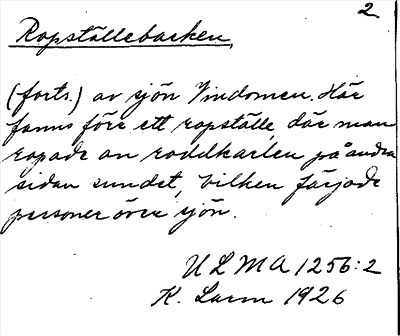 2.
Ropställebacken,
(forts.) av sjön Vindomen. Här
fanns förr ett ropställe, där man
ropade an roddkarlen på andra
sidan sundet, vilken färjade
personer över sjön.
ULMA 1256:2
K. Larm 1926